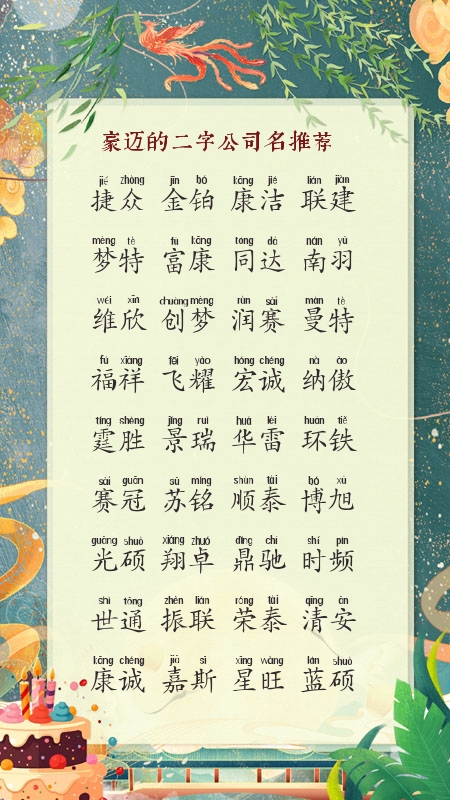 豪迈的二字公司名推荐
jié zhòng jīn bó kāng jié lián jiàn
捷众 金铂 康洁 联建
mèng tè fù kāng tóng dá nán yǔ
梦特 富康 同达 南羽
wéi xīn chuàng mèng rùn sài màn tè
维欣 创梦 润赛 曼特
fú xiáng fēi yào hóng chéng nà ào
福祥 飞耀 宏诚 纳傲
tíng shèng jǐng ruì huá léi huán tiě
霆胜 景瑞 华雷 环铁
sài guān sū míng shùn tài bó xù
赛冠 苏铭 顺泰 博旭
guāng shuò xiáng zhuó dǐng chí shí pín
光硕 翔卓 鼎驰 时频
shì tōng zhèn lián róng tài qīng ān
世通 振联 荣泰 清安
kāng chéng jiā sī xīng wàng lán shuò
康诚 嘉斯 星旺 蓝硕